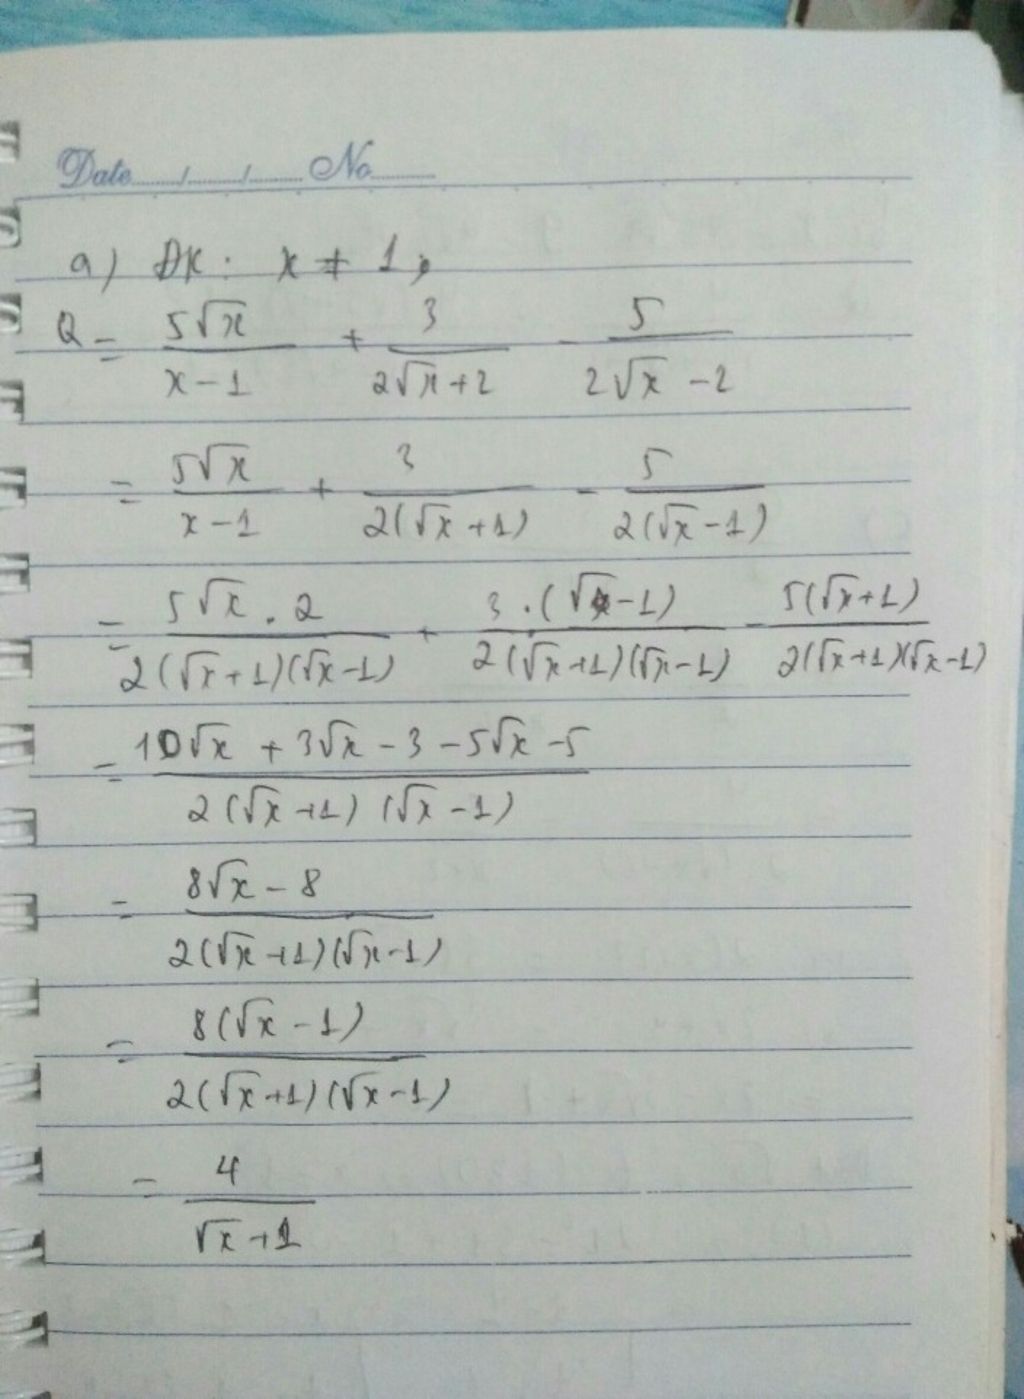 Date....../....../...... No..........
a) ĐK: x ≠ 1;
Q = 5√x / x-1 + 3 / 2√x+2 - 5 / 2√x -2
= 5√x / x-1 + 3 / 2(√x+1) - 5 / 2(√x-1)
= 5√x . 2 / 2(√x+1)(√x-1) + 3.(√x-1) / 2(√x+1)(√x-1) - 5(√x+1) / 2(√x+1)(√x-1)
= 10√x + 3√x - 3 - 5√x - 5 / 2(√x+1)(√x-1)
= 8√x - 8 / 2(√x+1)(√x-1)
= 8(√x-1) / 2(√x+1)(√x-1)
= 4 / √x+1